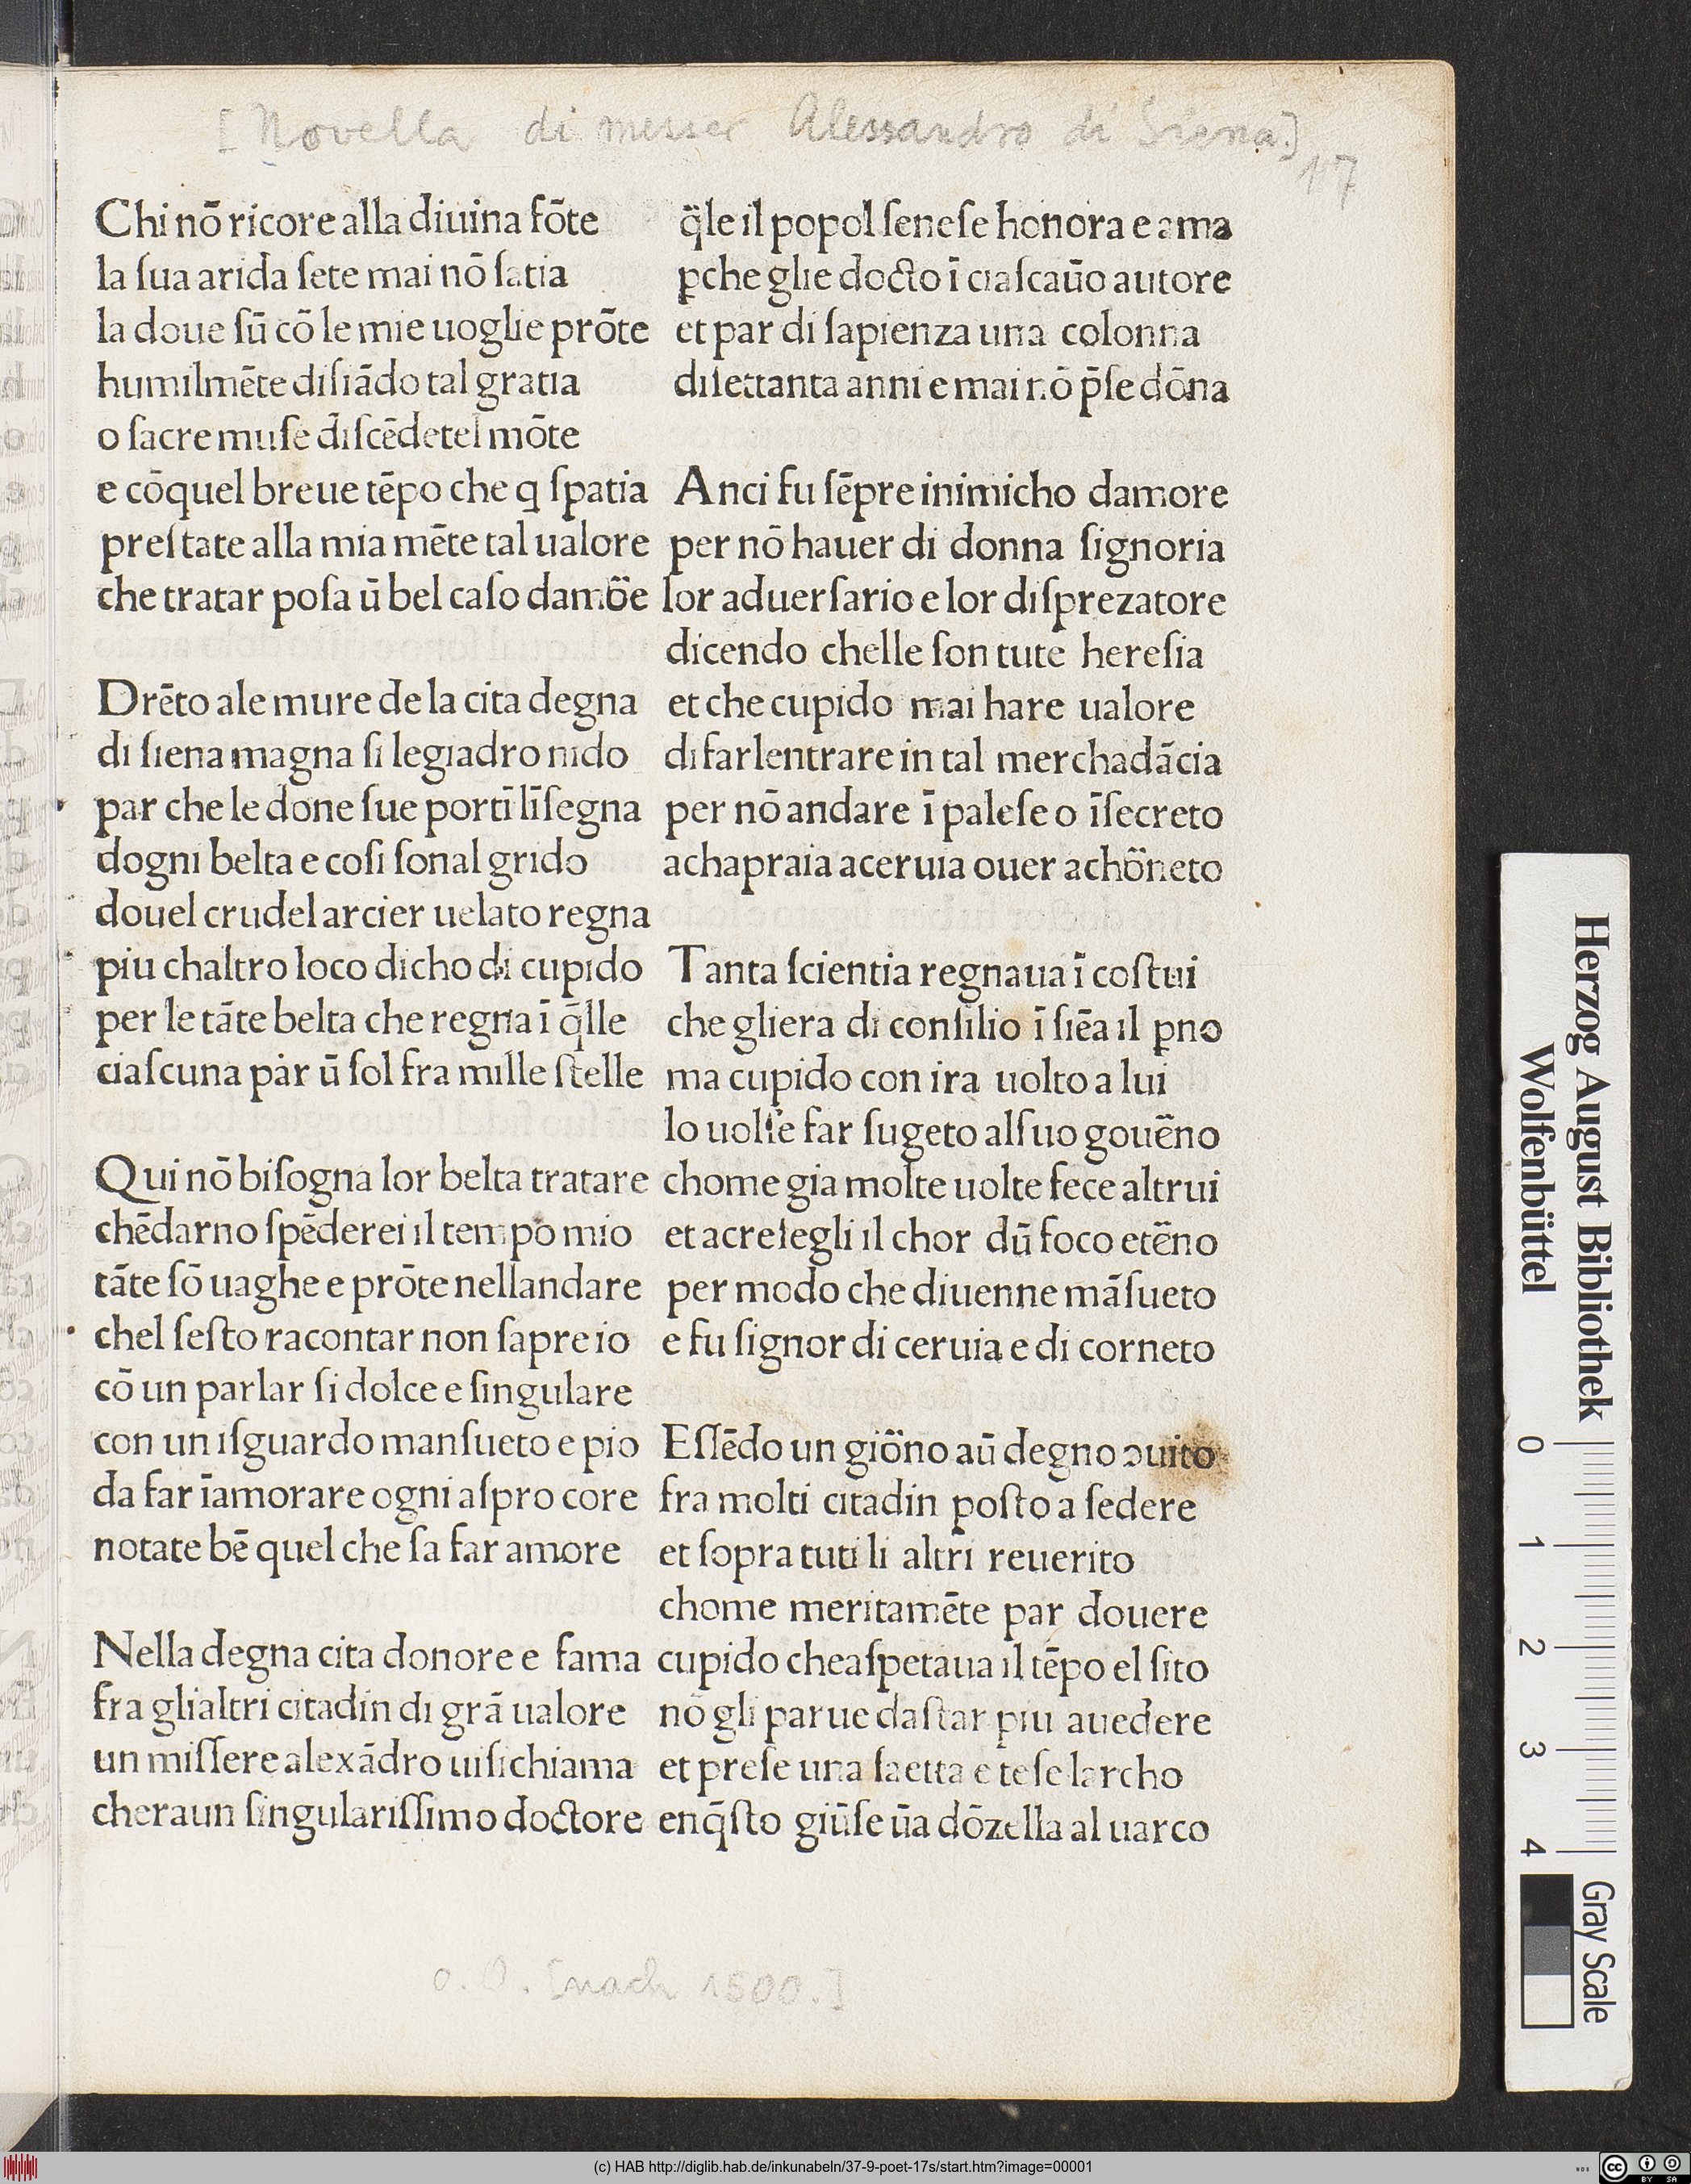 [Novella di messer Alessandro di Siena.]
17
Chi nō ricore alla diuina fōte
la ſua arida ſete mai nō ſatia
la doue ſū cō le mie uoglie prōte
humilmēte diſiādo tal gratia
o ſacre muſe diſcēdetel mōte
e cōquel breue tēpo che q ſpatia
preſtate alla mia mēte tal ualore
che tratar poſa ū bel caſo damōe
Drēto ale mure de la cita degna
di ſiena magna ſi legiadro nido
par che le done ſue portī līſegna
dogni belta e coſi ſonal grido
douel crudel arcier uelato regna
piu chaltro loco dicho di cupido
per le tāte belta che regna ī q̄lle
ciaſcuna par ū ſol fra mille ſtelle
Qui nō biſogna lor belta tratare
chēdarno ſpēderei il tempo mio
tāte ſō uaghe e prōte nellandare
chel ſeſto racontar non ſapre io
cō un parlar ſi dolce e ſingulare
con un iſguardo manſueto e pio
da far īamorare ogni aſpro core
notate bē quel che ſa far amore
Nella degna cita donore e fama
fra glialtri citadin di grā ualore
un miſſere alexādro uiſichiama
cheraun ſingulariſſimo doctore
q̈le il popol ſeneſe honora e ama
ꝑche glie docto ī ciaſcaūo autore
et par di ſapienza una colonna
diſettanta anni e mai nō p̄ſe dōna
Anci fu ſēpre inimicho damore
per nō hauer di donna ſignoria
lor aduerſario e lor diſprezatore
dicendo chelle ſon tute hereſia
et che cupido mai hare ualore
di farlentrare in tal merchadācia
per nō andare ī paleſe o īſecreto
achapraia aceruia ouer achöneto
Tanta ſcientia regnaua ī coſtui
che gliera di conſilio ī ſiēa il ꝑno
ma cupido con ira uolto a lui
lo uolſe far ſugeto alſuo gouëno
chome gia molte uolte fece altrui
et acreſegli il chor dū foco etëno
per modo che diuenne māſueto
e fu ſignor di ceruia e di corneto
Eſſēdo un giöno aū degno ↄuito
fra molti citadin poſto a ſedere
et ſopra tuti li altri reuerito
chome meritamēte par douere
cupido cheaſpetaua il tēpo el ſito
nō gli parue daſtar piu auedere
et preſe una ſaetta e teſe larcho
enq̄ſto giūſe ūa dōzella al uarco
o. O. [nach 1500.]
Herzog August Bibliothek
Wolfenbüttel
0 1 2 3 4
Gray Scale
(c) HAB http://diglib.hab.de/inkunabeln/37-9-poet-17s/start.htm?image=00001
cc BY SA